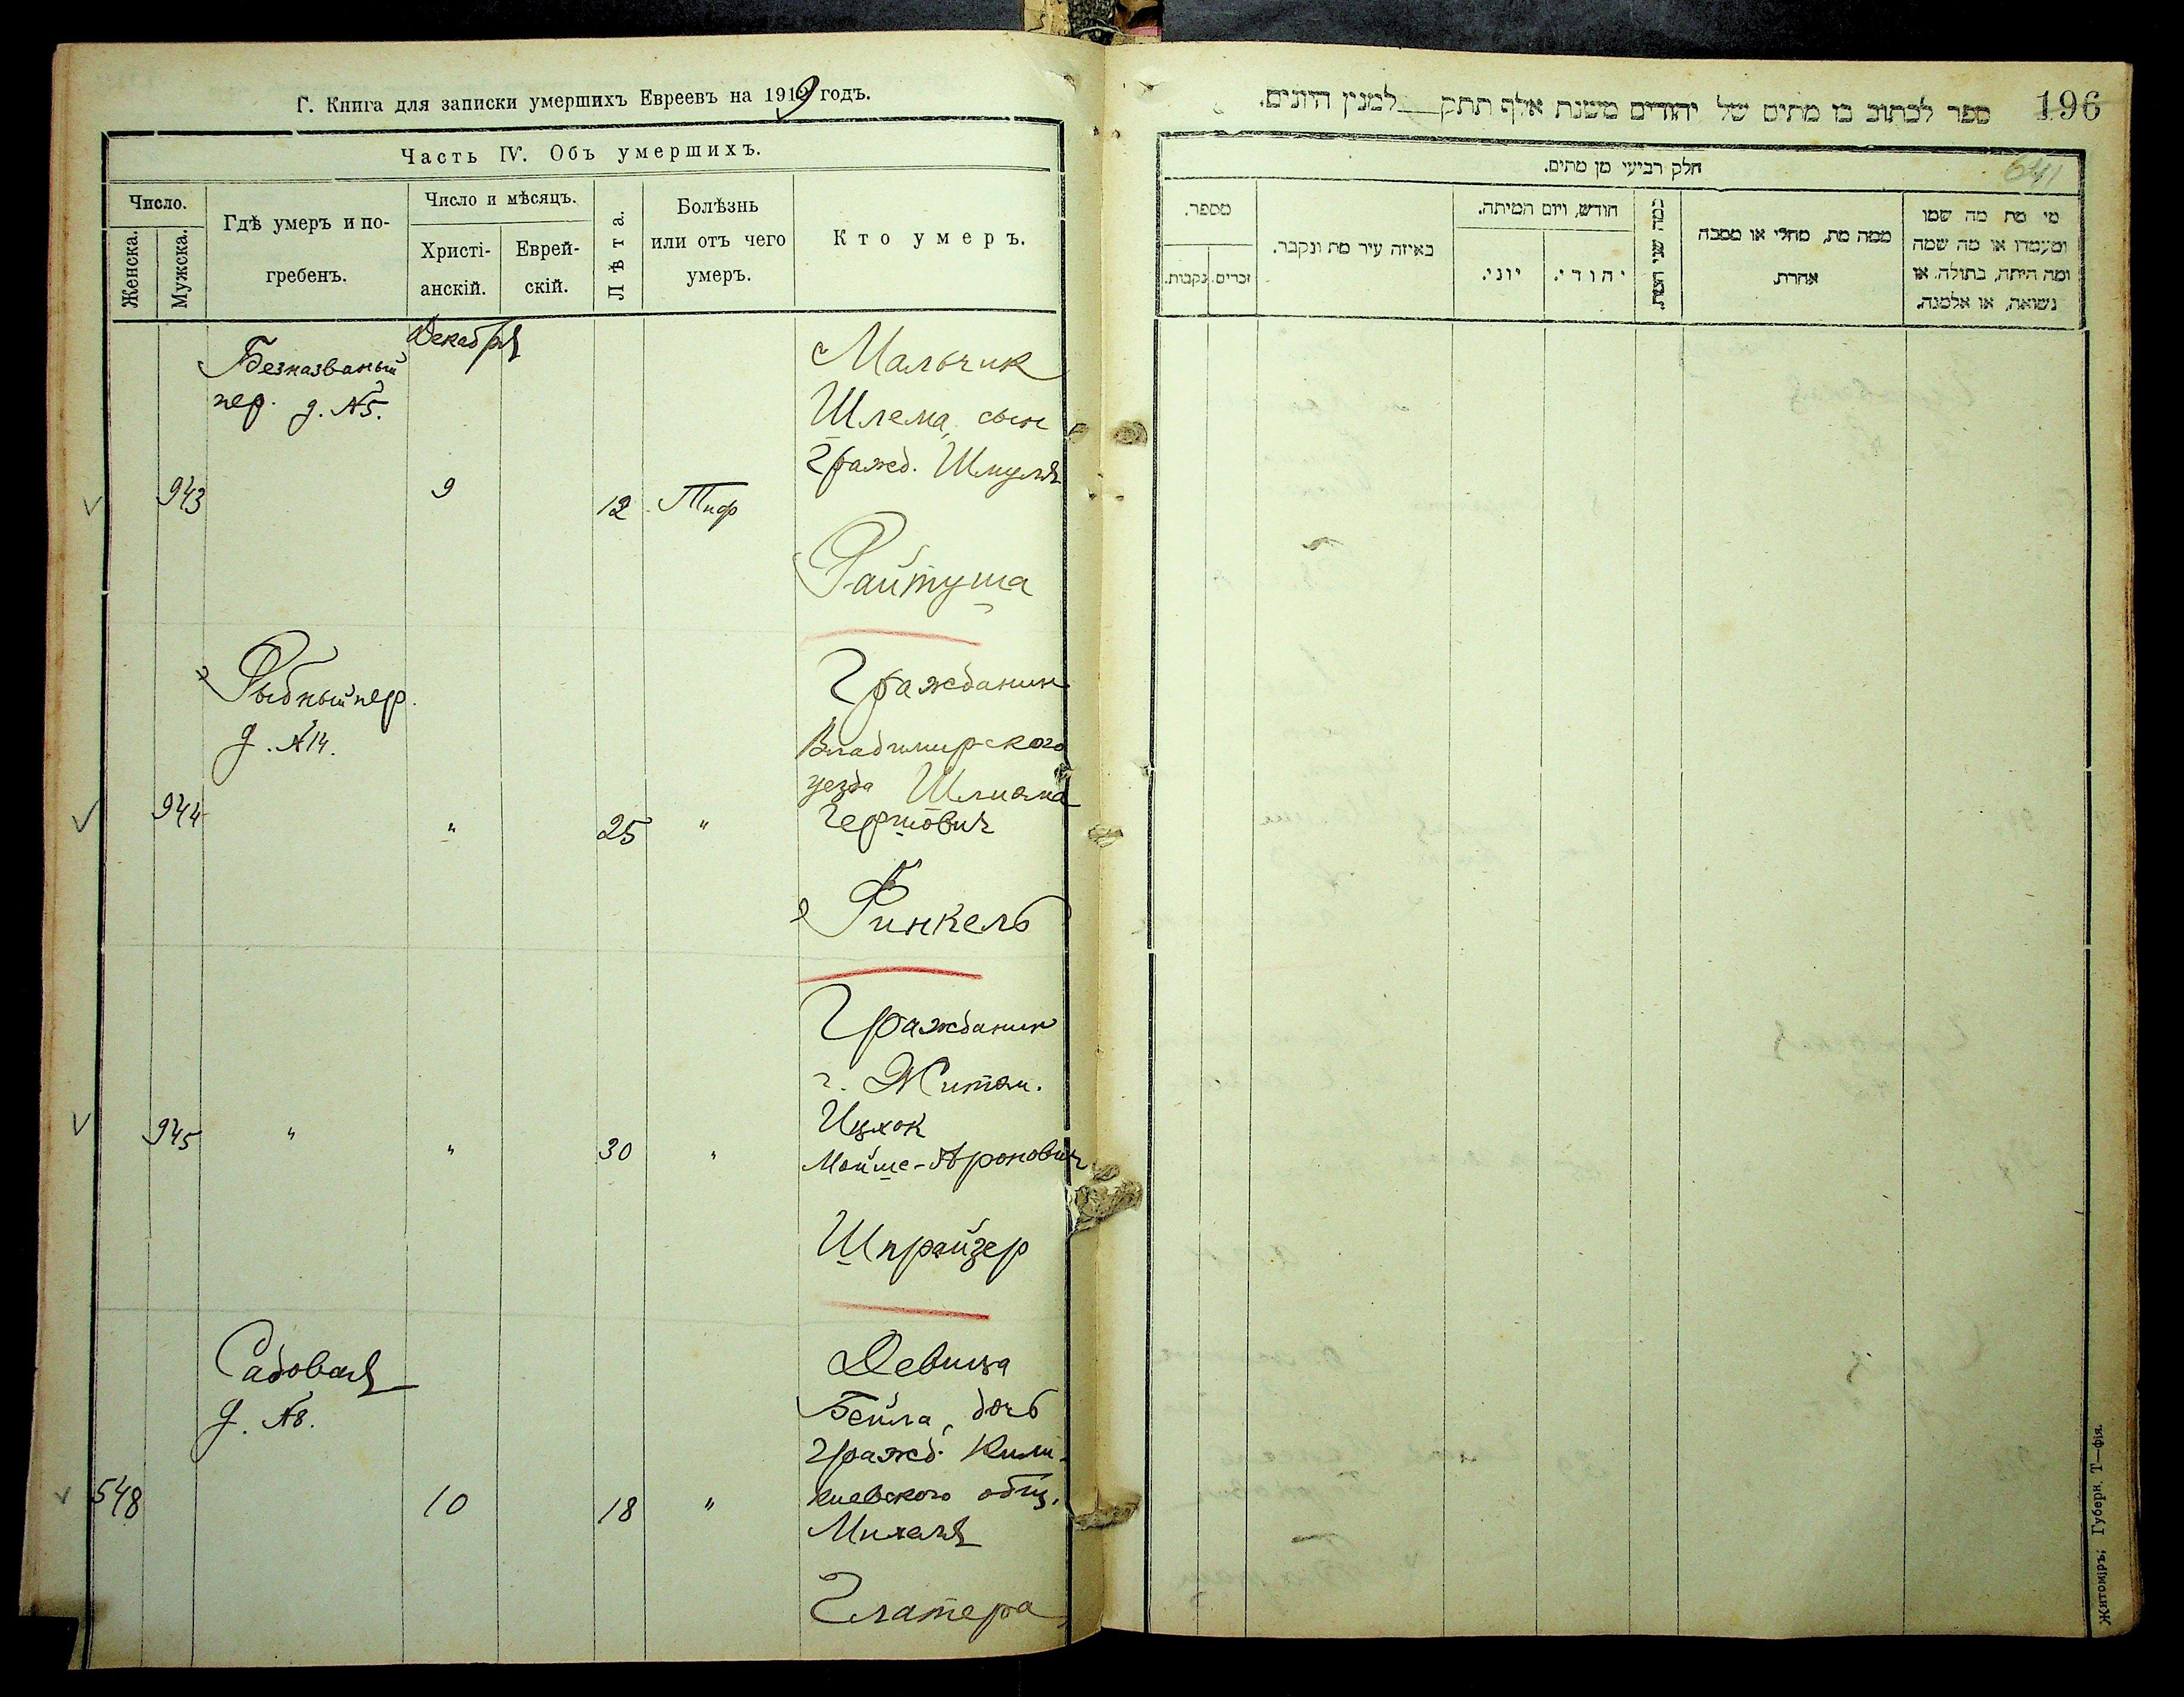 Г. Книга для записки умершихъ Евреевъ на 1919 годъ.
Часть IV. Объ умершихъ.
Число.
Женска.
Мужска.
Гдѣ умеръ и по-
гребенъ.
Число и мѣсяцъ.
Христі-
анскій.
Еврей-
скій.
Лѣта.
Болѣзнь
или отъ чего
умеръ.
Кто умеръ.
Декабря
Безназваный
пер. д. №5.
943
9
12
Тиф
Мальчик
Шлема, сын
Гражд. Шмуля
Райтуша
Рыбный пер.
д. №14.
944
"
25
"
Гражданин
Владимирского
уезда Шлиома
Гершович
Финкель
Гражданин
г. Житом.
Ицхок
Мойше-Аронович
945
"
"
30
"
Шпрайзер
Садовая
д. №8.
548
10
18
"
Девица
Бейла, дочь
гражд. Кили-
киевского общ.
Михеля
Глатера
ספר לכתוב בו מתים של יהודים משנת אלף תתק למנין היונים.
196
641
חלק רביעי מן מתים.
מספר.
נקבות.
זכרים.
באיזה עיר מת ונקבר.
חודש, ויום המיתה.
יוני.
יהודי.
כמה שני המת.
ממה מת, מחלי או מסבה
אחרת.
מי מת מה שמו
ומעמדו או מה שמה
ומה היתה, בתולה, או
נשואה, או אלמנה.
Житомiръ; Губерн. Т—фія.